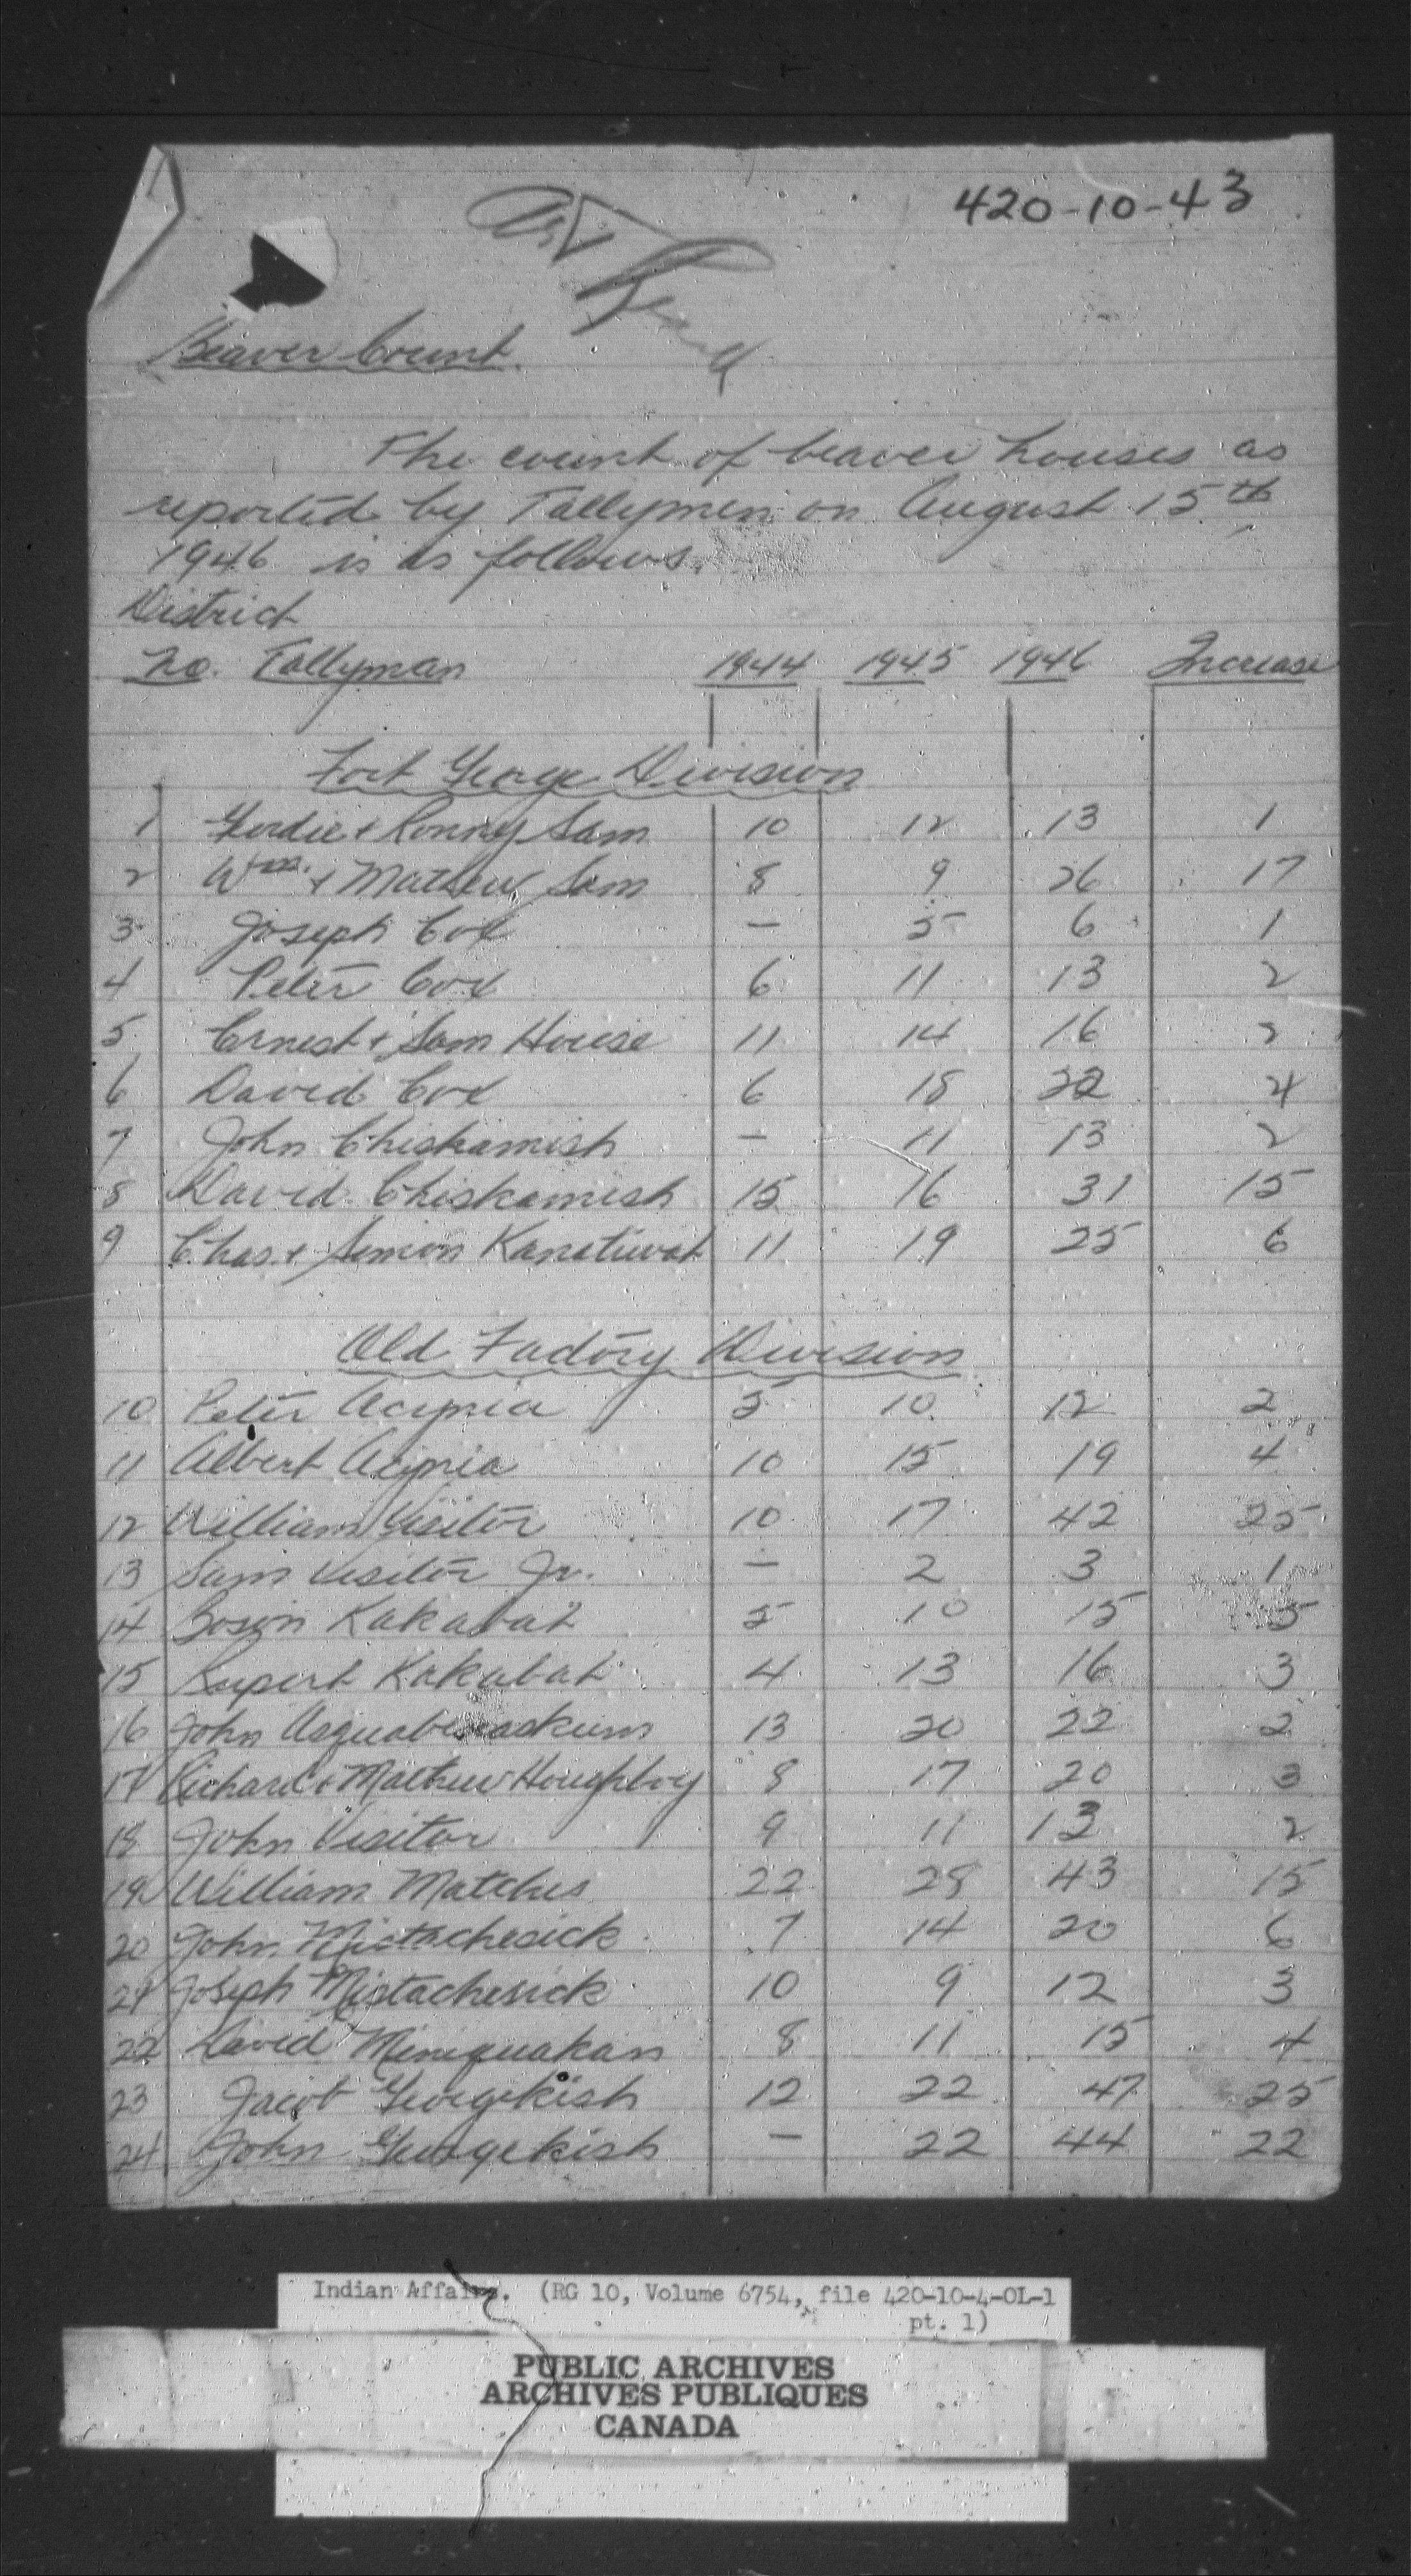 420-10-43
Beaver Count.
The count of beaver houses as
reported by Tallymen on August 15th
1946 is as follows.
District
No. Tallyman 1944 1945 1946 Increase
Fort George Division
1 Gerdie & Ronny Sam 10 12 13 1
2 Wm. & Mathew Sam 8 9 26 17
3 Joseph Cox — 5 6 1
4 Peter Cox 6 11 13 2
5 Ernest & Sam House 11 14 16 2
6 David Cox 6 18 22 4
7 John Chiskamish — 11 13 2
8 David Chiskamish 15 16 31 15
9 Chas. & Simon Kanatiwat 11 19 25 6
Old Factory Division
10 Peter 5 10 12 2
11 Albert 10 15 19 4
12 William Visitor 10 17 42 25
13 Sam Visitor Jr. — 2 3 1
14 Kakabat 5 10 15 5
15 Rupert Kakabat 4 13 16 3
16 John 13 20 22 2
17 Richard & Mathew Houghboy 8 17 20 3
18 John Visitor 9 11 13 2
19 William Matches 22 28 43 15
20 John Mistachesick 7 14 20 6
21 Joseph Mistachesick 10 9 12 3
22 David Miniquakan 8 11 15 4
23 Jacob Georgekish 12 22 47 25
24 John Georgekish — 22 44 22
Indian Affairs. (RG 10, Volume 6754, file 420-10-4-OL-1
pt. 1)
PUBLIC ARCHIVES
ARCHIVES PUBLIQUES
CANADA